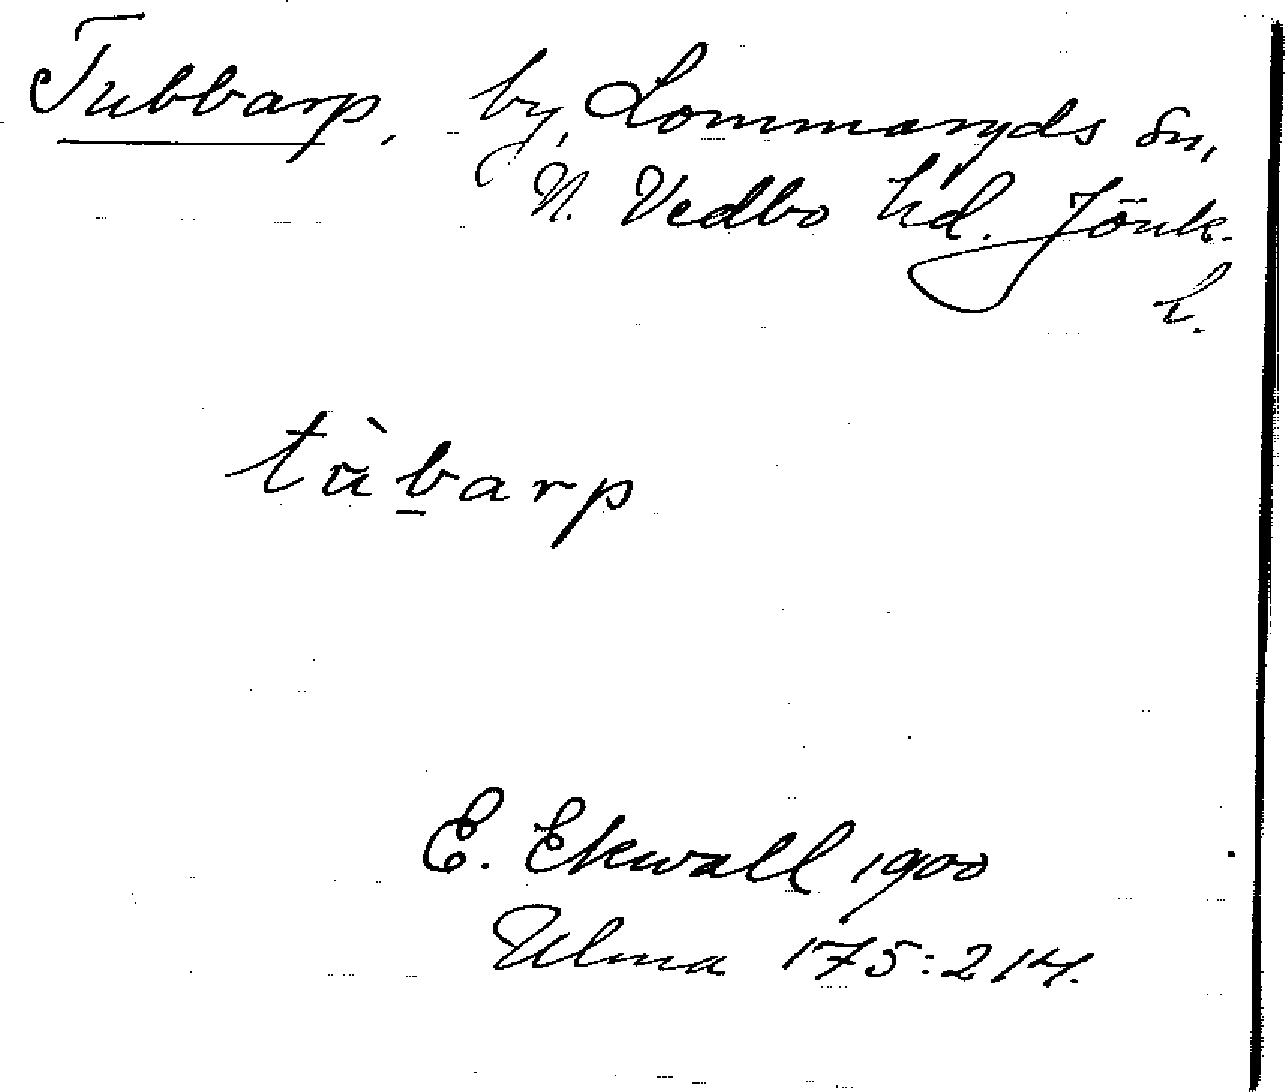 Tubbarp, by, Lommaryds sn,
N. Vedbo hd. Jönk.
l.
tàb̲arp
E. Ekwall 1900
Ulma 175:214.